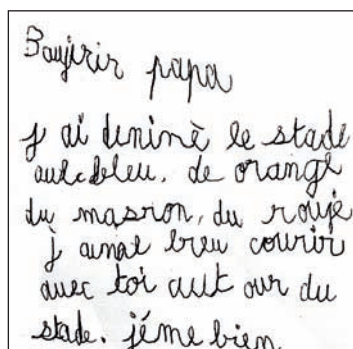 Boujirir papa
j ai deninè le stade
avec bleu. de orange
du masron, du rouje
j aimae breu courir
avec toi aut our du
stade. jéme bien